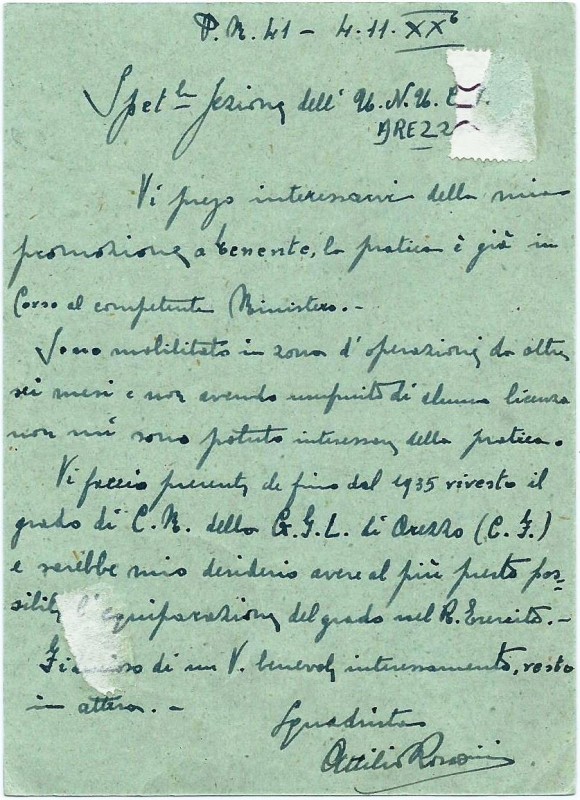 P.M. 41 - 4.11.XXº
Spet.le Sezione dell' U.N.U.C.I.
AREZZO
Vi prego interessarvi della mia
promozione a tenente, la pratica è già in
corso al competente Ministero.-
Sono mobilitato in zona d'operazione da oltre
sei mesi e non avendo usufruito di alcuna licenza
non mi sono potuto interessare della pratica.
Vi faccio presente che fino dal 1935 rivesto il
grado di C.M. della G.I.L. di Arezzo (C.F.)
e sarebbe mio desiderio avere al più presto pos-
sibile l'equiparazione del grado nel R. Esercito.-
Fiducioso di un V. benevolo interessamento, resto
in attesa.-
Squadrista
Attilio